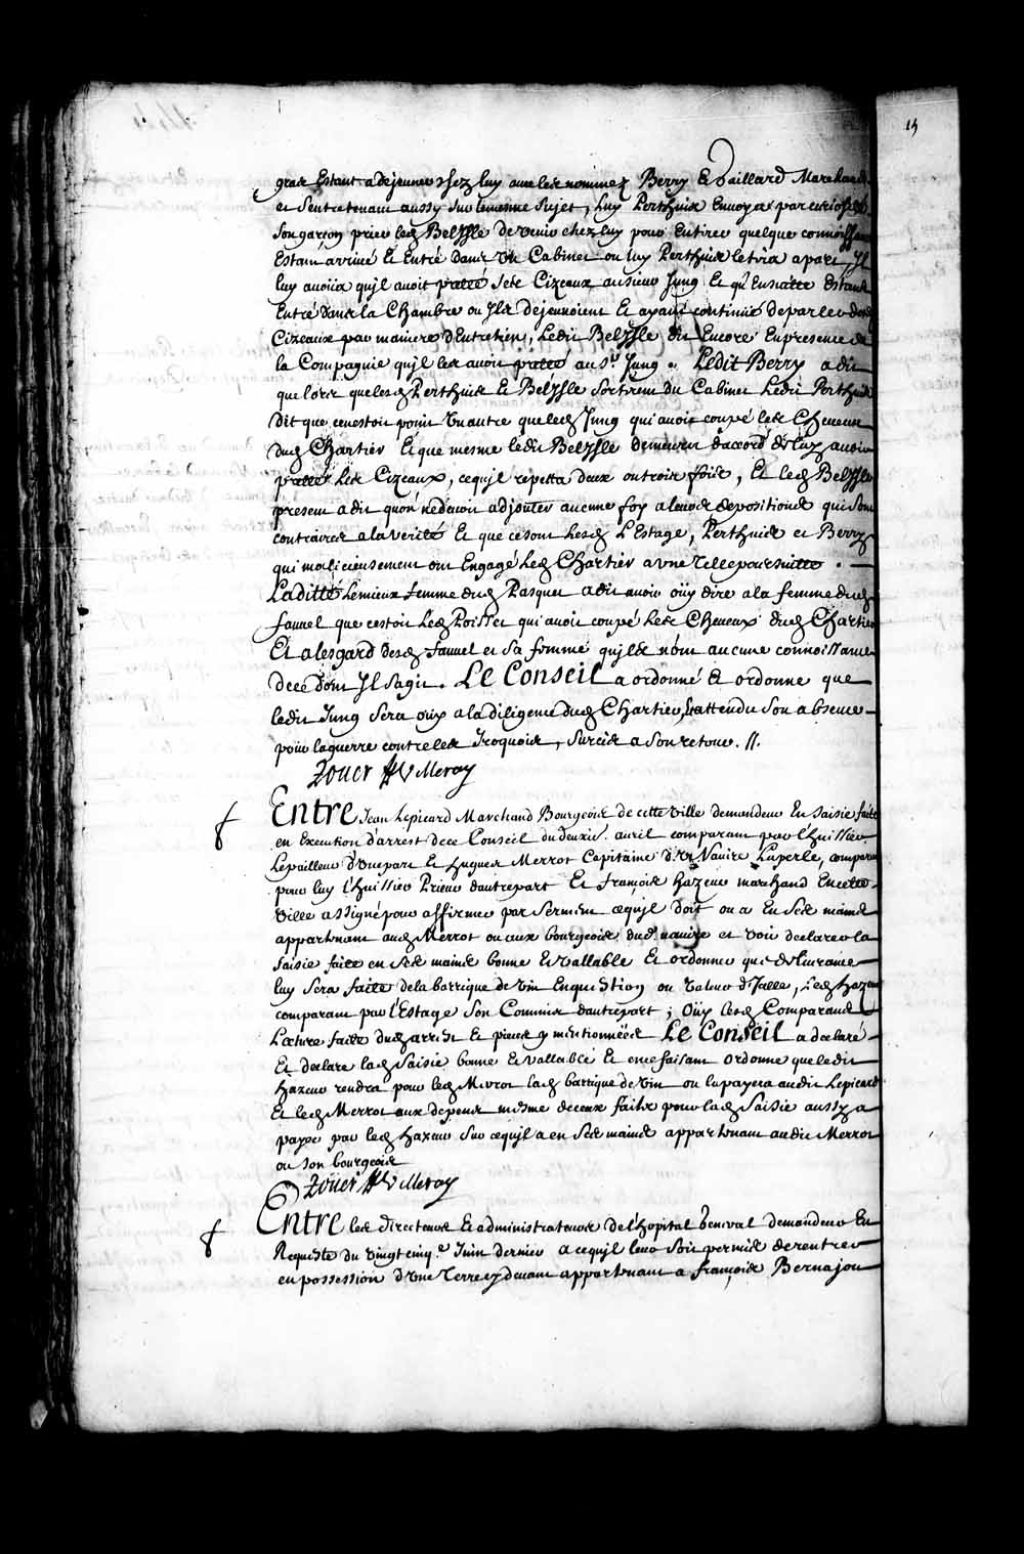 15
gras Estant a dejeuner chez luy avec les nommez Berry Et Vaillard Marchands
et Sentretenant aussy sur le mesme Sujet, luy Perthuis Envoya par curiosité
Son garçon prier led Belisle de venir chez luy pour En tirer quelque connoissance
Estant arrivé Et Entré dans Un Cabinet ou luy Perthuis le tira apart, Il
luy avoüa qu'il avoit presté Ses Cizeaux au sieur Jung Et qu'Ensuitte Estant
Entré dans la Chambre ou Ils dejeunoient Et ayant continué de parler des
Cizeaux par maniere d'Entretien, Ledit Belisle dit Encore En presence de
la Compagnie qu'il les avoit presté au Sr. Jung. Ledit Berry a dit
que lors que lesd Perthuis Et Belisle Sortirent du Cabinet Ledit Perthuis
Dit que ce nestoit point Un autre que led Jung qui avoit coupé les Cheveux
dud Chartier Et que mesme ledit Belisle demeura daccord de luy avoir
presté Les Cizeaux, ce qu'il repetta deux ou trois fois, Et led Belisle
present a dit qu'on ne devoit adjouter aucune foy a leurs depositions qui Sont
contraires a la verité Et que ce sont Lesd L'Estage, Perthuis et Berry
qui malicieusement ont Engagé led Chartier a une Telle poursuitte. —
Laditte Lemieux femme dud Pasquet a dit avoir oüy dire a la femme dud
favuel que cestoit Led Poisset qui avoit coupé Les Cheveux dud Chartier
Et a lesgard desd favuel et Sa femme qu'ils n'ont aucune connoissance
de ce dont Il Sagit. Le Conseil a ordonné Et ordonne que
ledit Jung Sera ouy a la diligence dud Chartier, Et attendu Son absence
pour la guerre contre les Iroquois, Surcis a Son retour. //.
Rouer ## Villeray
Entre Jean Lepicard Marchand Bourgeois de cette Ville demandeur En Saisie faite
en Execution d'arrest de ce Conseil du deuxie. avril comparant par l'huissier
Lepailleur d'Une part Et hugues Merrot Capitaine d'Un Navire La perle, comparant
pour luy l'huissier Prieur dautrepart Et françois hazeur marchand En cette
Ville assigné pour affirmer par Serment ce qu'il doit ou a En Ses mains
appartenant aud Merrot ou aux bourgeois dud. navire et voir declarer la
Saisie faite en Ses mains bonne Et vallable Et ordonner que delivrance
luy Sera faite de la barrique de vin En question ou valeur d'Icelle, Led hazeur
comparant par l'Estage Son Commis dautrepart; Oüy lesd Comparans
Lecture faite dud arrest Et pieces y mentionnées Le Conseil a declaré
Et declare lad Saisie bonne Et vallable Et en ce faisant ordonne que ledit
hazeur rendra pour led Merrot lad barrique de vin ou la payera audit Lepicard
Et led Merrot aux depens mesme de ceux faits pour lad Saisie aussy a
payer par led hazeur Sur ce qu'il a en Ses mains appartenant audit Merrot
ou Son bourgeois
Rouer ## Villeray
Entre les directeurs Et administrateurs de l'hopital General demandeurs En
Requeste du vingt cinqe. Juin dernier a ce qu'il leur Soit permis de rentrer
en possession d'une Terre cydevant appartenant a françois Bernajou